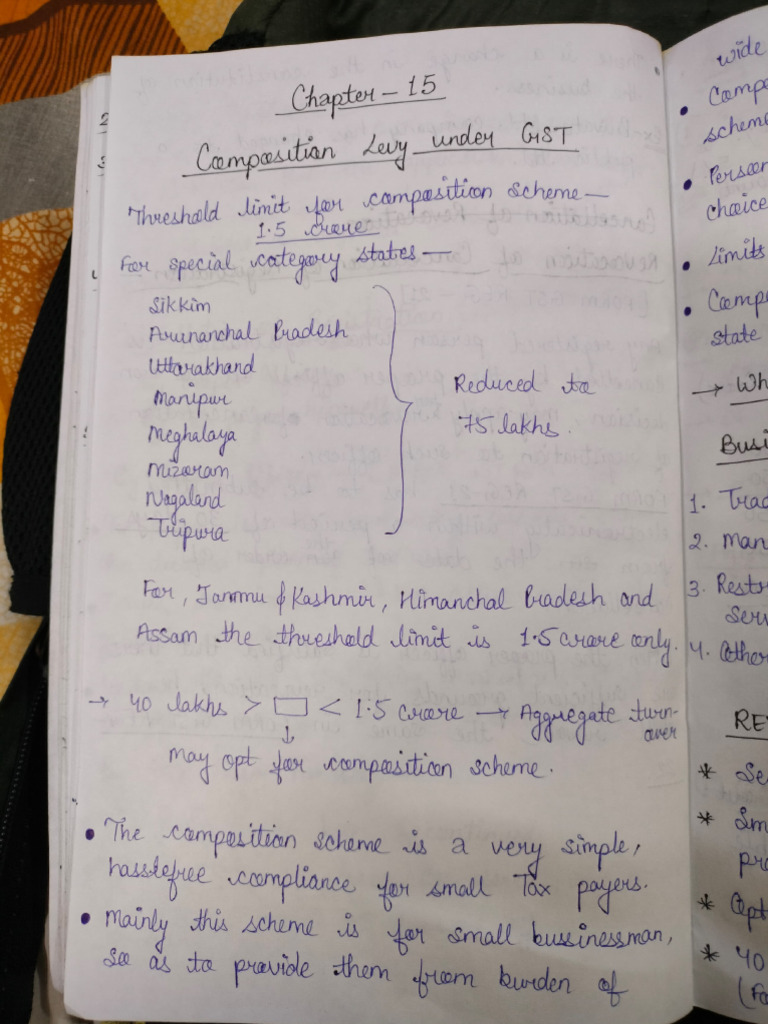 Chapter - 15
Composition Levy under GST
Threshold limit for composition scheme —
1.5 crore
For special category states —
Sikkim
Arunanchal Pradesh
Uttarakhand
Manipur
Meghalaya
Mizoram
Nagaland
Tripura
Reduced to
75 lakhs.
For, Jammu & Kashmir, Himanchal Pradesh and
Assam the threshold limit is 1.5 crore only.
→ 40 lakhs > □ < 1.5 crore → Aggregate turn-
over
↓
may opt for composition scheme.
• The composition scheme is a very simple,
hasslefree compliance for small Tax payers.
• Mainly this scheme is for small bussinessman,
so as to provide them from burden of
wide
• Compo
scheme
• Person
choice
• Limits
• Compo
state
→ Wh
Busi
1. Trad
2. Man
3. Restr
Serv
4. Other
RE
* Se
* Sm
pro
* Opt
* 40
(Fo